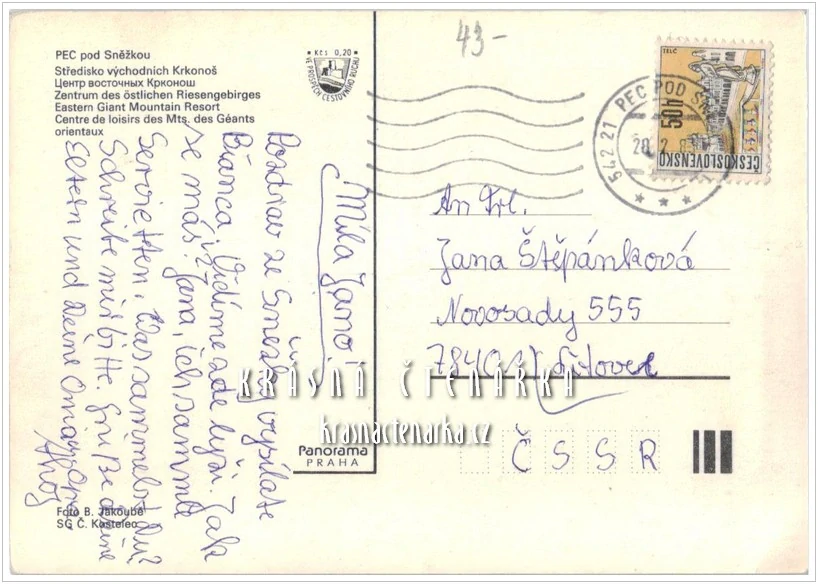 43-
PEC pod Sněžkou
Středisko východních Krkonoš
Центр восточных Крконош
Zentrum des östlichen Riesengebirges
Eastern Giant Mountain Resort
Centre de loisirs des Mts. des Géants
orientaux
Kčs 0,20
VE PROSPĚCH CESTOVNÍHO RUCHU
542 21 PEC POD
TELČ
50h
ČESKOSLOVENSKO
Míla Jano!
Pozdrav ze Sněžky vysílate
Bianca. Vidíme zde lyži. Jak
se máš? Jana, ich sammle
Servietten. Was sammelst Du?
Schreibe mir bitte. Grüße deine
Eltern und deine Oma, Opa
Ahoj
An Frl.
Jana Štěpánková
Novosady 555
78401 Litovel
KRÁSNÁ ČTENÁŘKA
krasnactenarka.cz
Panorama
PRAHA
ČSSR
Foto B. Jakoubě
SG Č. Kostelec